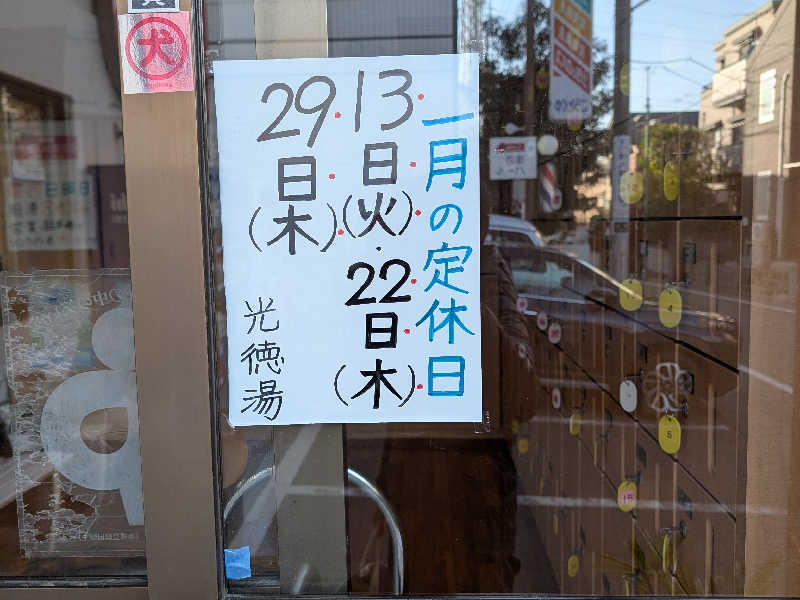 犬
一月の定休日
13日(火)・22日(木)
29日(木)
光徳湯
4
5
15